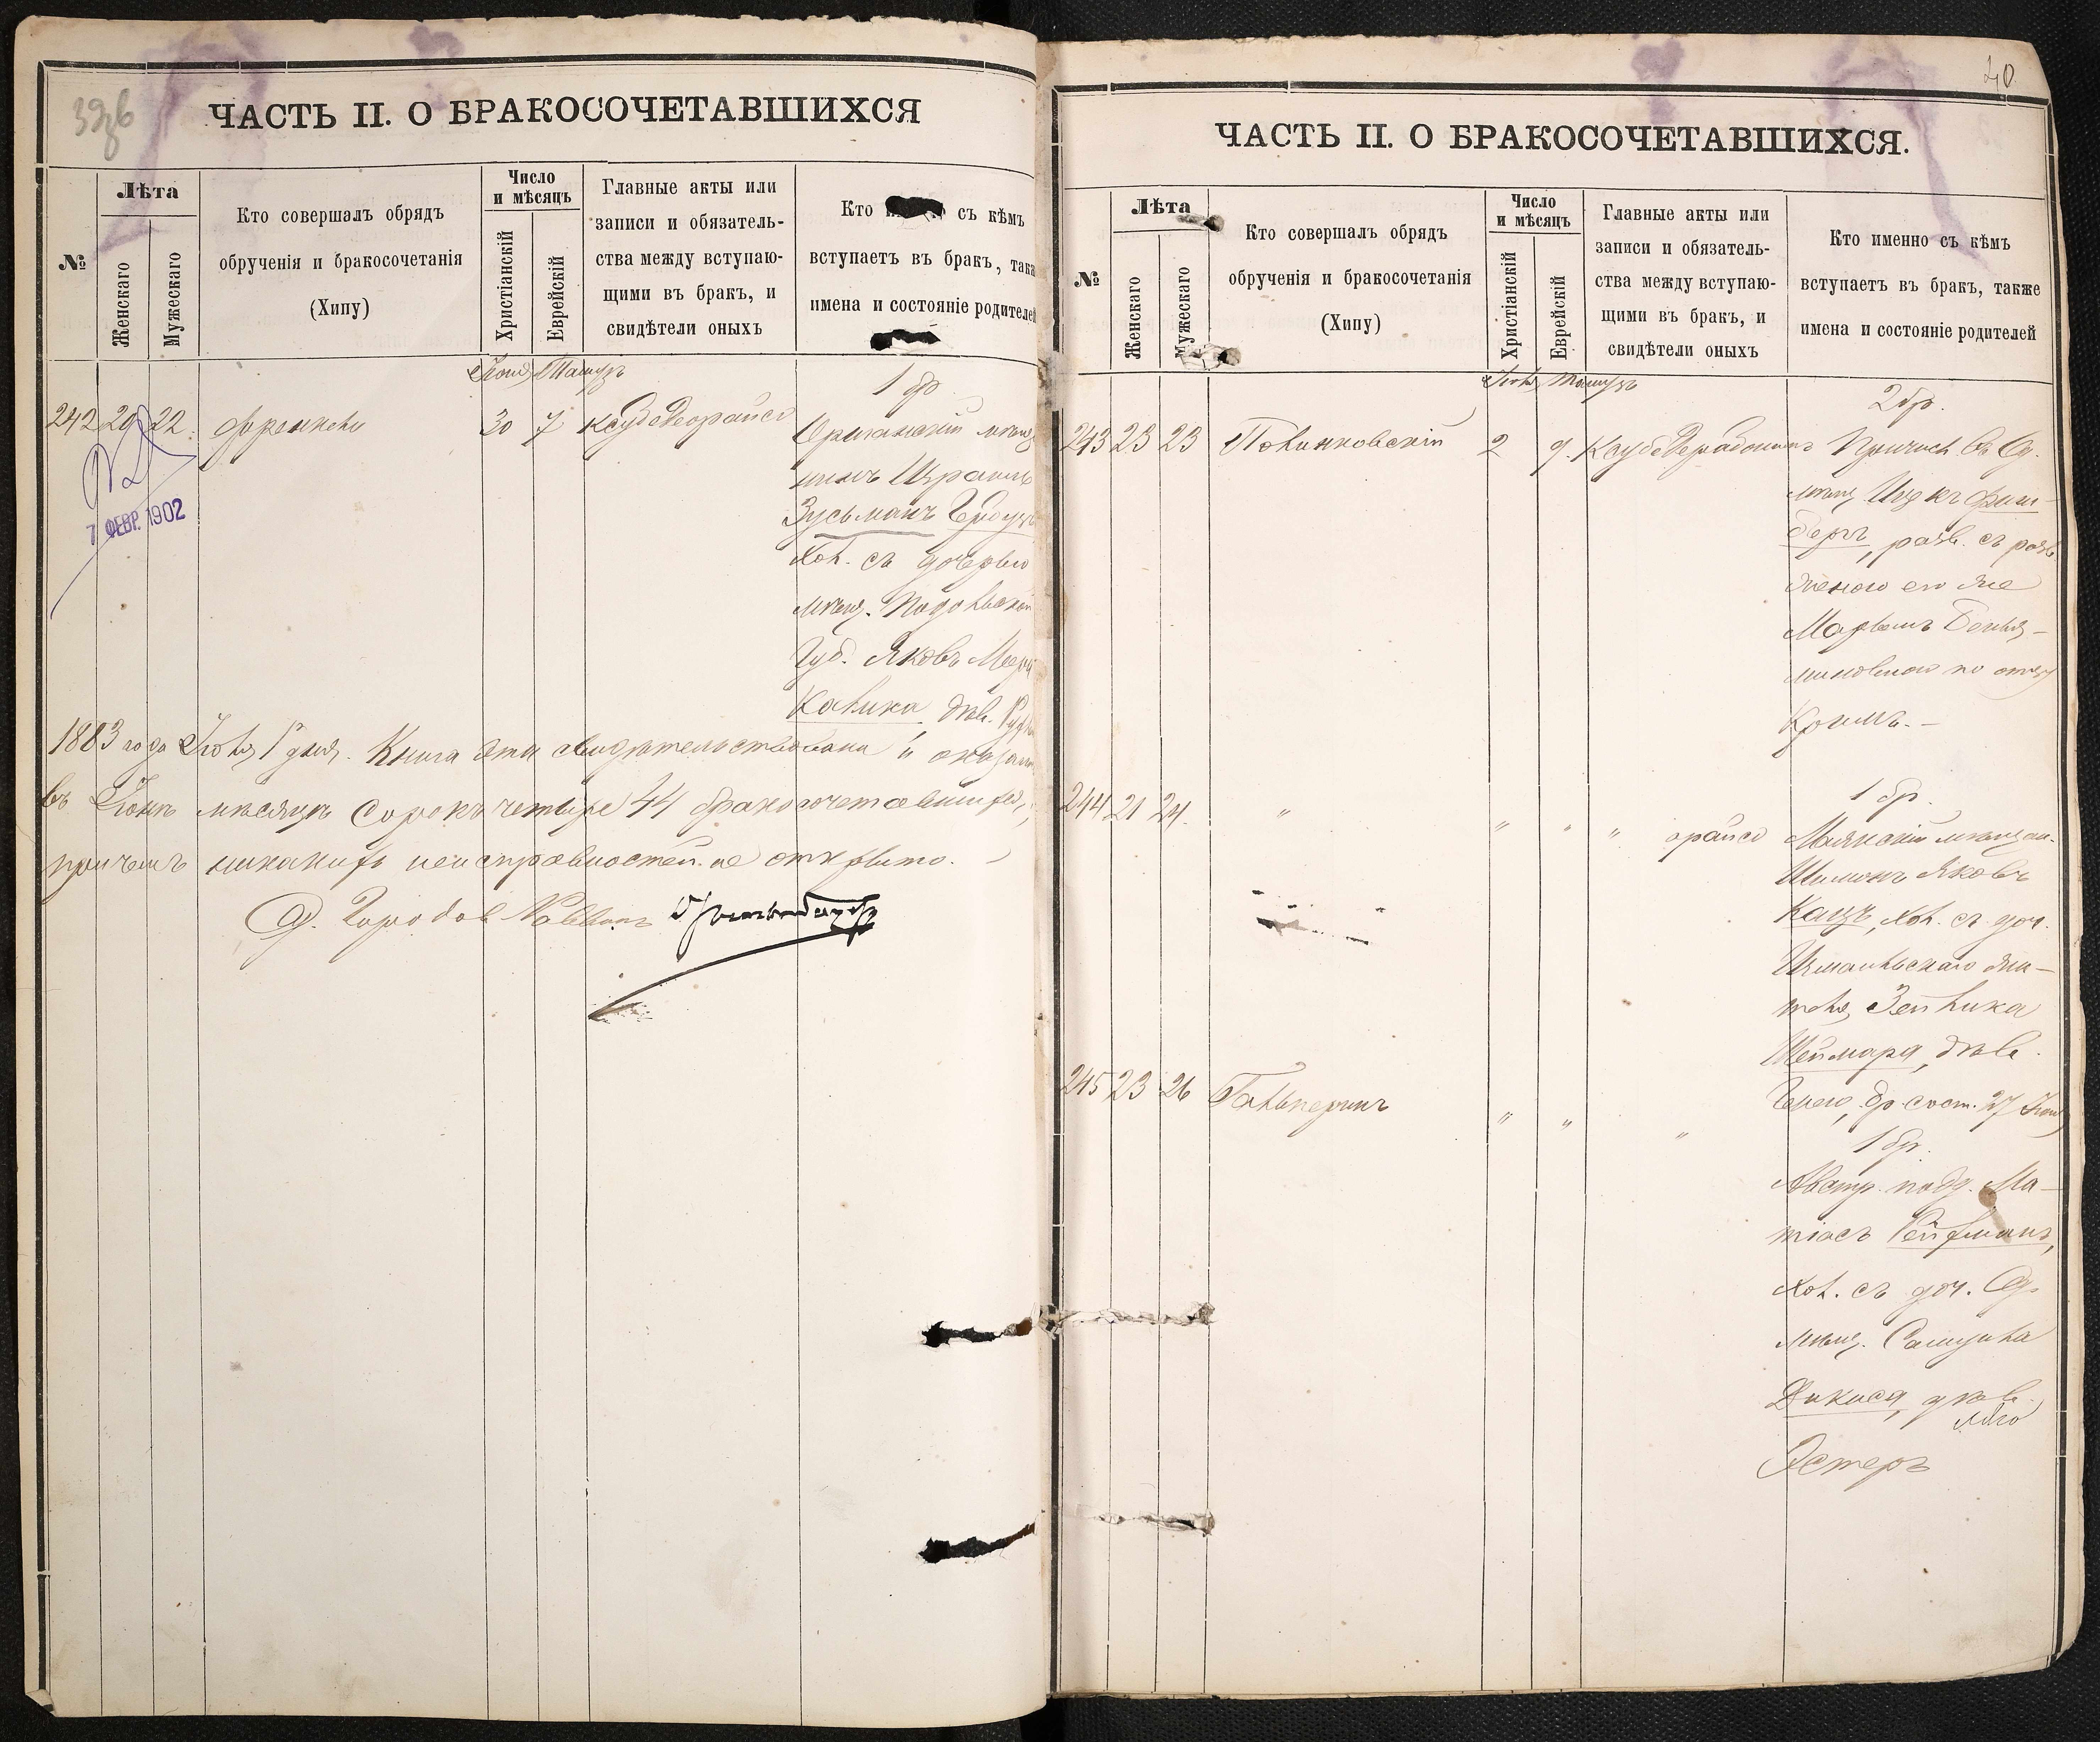 39об
ЧАСТЬ II. О БРАКОСОЧЕТАВШИХСЯ
№
Лѣта
Женскаго
Мужескаго
Кто совершалъ обрядъ
обрученія и бракосочетанія
(Хипу)
Число
и мѣсяцъ
Христіанскій
Еврейскій
Главные акты или
записи и обязатель-
ства между вступаю-
щими въ бракъ, и
свидѣтели оныхъ
Кто съ кѣмъ
вступаетъ въ бракъ, так
имена и состояніе родителе
Іюня Тамузъ
1 бр
242 20 22. Френкель 30 7 Ксубе Деорайсо
Оргѣевскій мѣщ
нинъ Израиль
Зусьманъ
Хол. съ дочерью
мѣщ. Подольской
Губ. Яковъ Меер
дѣв.
7 ФЕВР. 1902
1883 года Іюля 1 дня. Книга эта свидѣтельствована и оказал
въ Іюнѣ мѣсяцѣ сорокъ четыре 44 бракосочетавшихся,
причемъ никакихъ неисправностей не открыто.
О. Городов Раввинъ
40.
ЧАСТЬ II. О БРАКОСОЧЕТАВШИХСЯ.
№
Лѣта
Женскаго
Мужескаго
Кто совершалъ обрядъ
обрученія и бракосочетанія
(Хипу)
Число
и мѣсяцъ
Христіанскій
Еврейскій
Главные акты или
записи и обязатель-
ства между вступаю-
щими въ бракъ, и
свидѣтели оныхъ
Кто именно съ кѣмъ
вступаетъ въ бракъ, также
имена и состояніе родителей
Іюль Тамузъ
2 бр.
243 23 23 Полинковскій 2 9. Ксубе Дерабонинъ Причисл. къ Од.
мѣщ Ицекъ Фиш-
бергъ, разв. съ разв
женою его же
Марьемъ Бенья-
миновной по отцу
Кримъ. -
1 бр.
244 21 24. " " " " орайсо Маякскій мѣщан.
Шимонъ Яковъ
Кацъ, хол. съ доч.
Измаильскаго жи-
теля Зейлика
Шеймара, дѣв.
бр. сост. 27 Іюня
245 23 26 Гальперинъ " " "
1 бр.
Австр. подд. Ма-
тіасъ Рейфманъ,
хол. съ доч. Од.
мѣщ. Самуила
дѣв.
Эстеръ